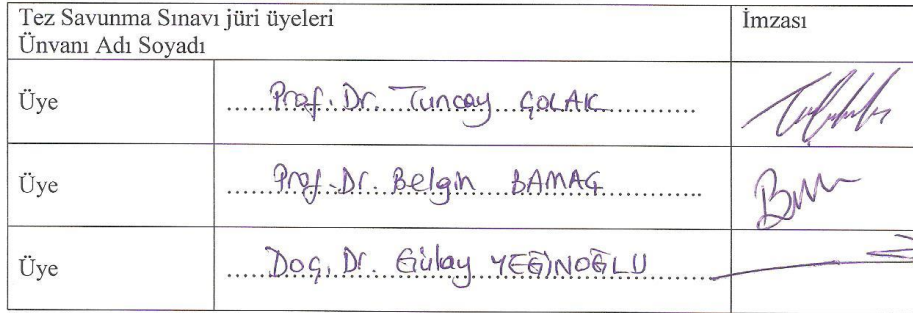 Tez Savunma Sınavı jüri üyeleri
Ünvanı Adı Soyadı
İmzası
Üye Prof. Dr. Tuncay ÇOLAK
Üye Prof. Dr. Belgin BAMAÇ
Üye Doç. Dr. Gülay YEĞİNOĞLU